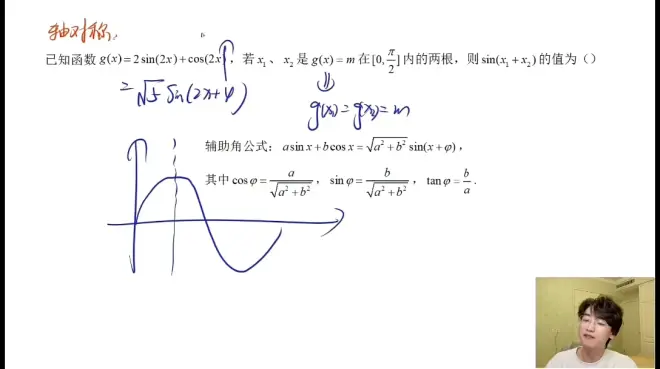 轴对称.
已知函数 g(x)=2sin(2x)+cos(2x), 若 x₁、x₂ 是 g(x)=m 在[0, π/2]内的两根, 则 sin(x₁+x₂) 的值为()
=√5 sin(2x+φ)
⇓
g(x₁)=g(x₂)=m
辅助角公式: a sin x+b cos x=√(a²+b²) sin(x+φ),
其中 cos φ=a/√(a²+b²), sin φ=b/√(a²+b²), tan φ=b/a.